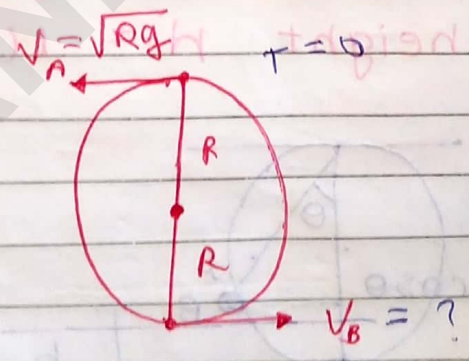 V_A = √Rg T = 0
R
R
V_B = ?